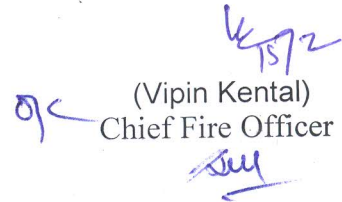 15/2
(Vipin Kental)
O/C
Chief Fire Officer